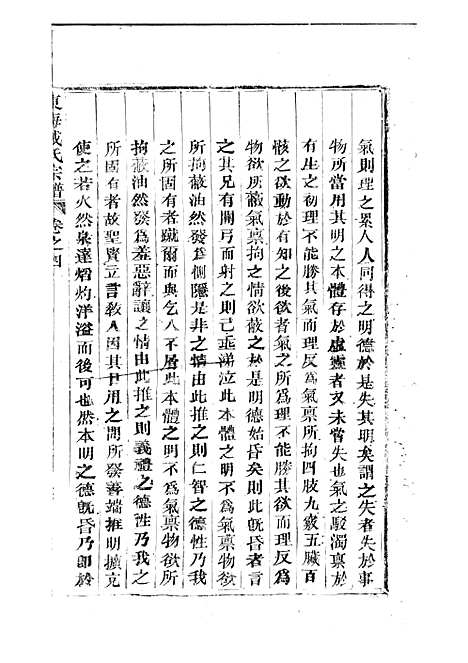 氣則理之累人人同得之明德於是失其明矣謂之失者失於事
物所當用其明之本體存於虛靈者又未嘗失也氣之駁濁稟於
有生之初理不能勝其氣而理反為氣稟所拘四肢九竅五臟百
骸之欲動於有知之後欲者氣之所為理不能勝其欲而理反為
物欲所蔽氣稟拘之情欲蔽之於是明德始昏矣則此旣昏者言
之其兄有關弓而射之則己垂涕泣此本體之明不為氣稟物欲
所拘蔽油然發為惻隱是非之情由此推之則仁智之德性乃我
之所固有者蹴爾而與乞人不屑此本體之明不為氣稟物欲所
拘蔽油然發為羞惡辭讓之情由此推之則義禮之德性乃我之
所固有者故聖賢立言教人因其日用之間所發善端推明擴充
使之若火然泉達熖灼洋溢而後可也然本明之德旣昏乃卽於
東海戚氏宗譜 卷之四